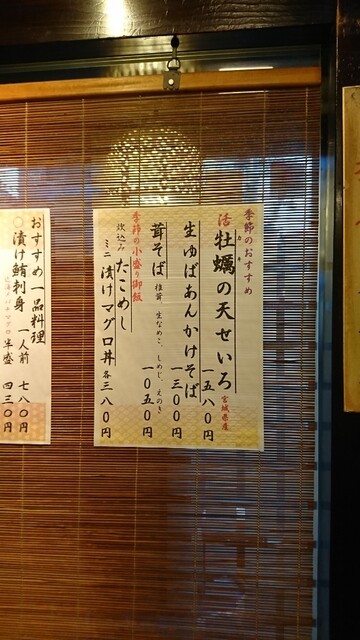 季節のおすすめ
活牡蠣の天せいろ 一五八〇円
かき
宮城県産
生ゆばあんかけそば 一三〇〇円
茸そば 椎茸、生なめこ、しめじ、えのき 一〇五〇円
季節の小盛り御飯
炊込み たこめし
ミニ 漬けマグロ丼 各三八〇円
おすすめ一品料理
漬け鮪刺身 一人前 七八〇円
半盛 四三〇円